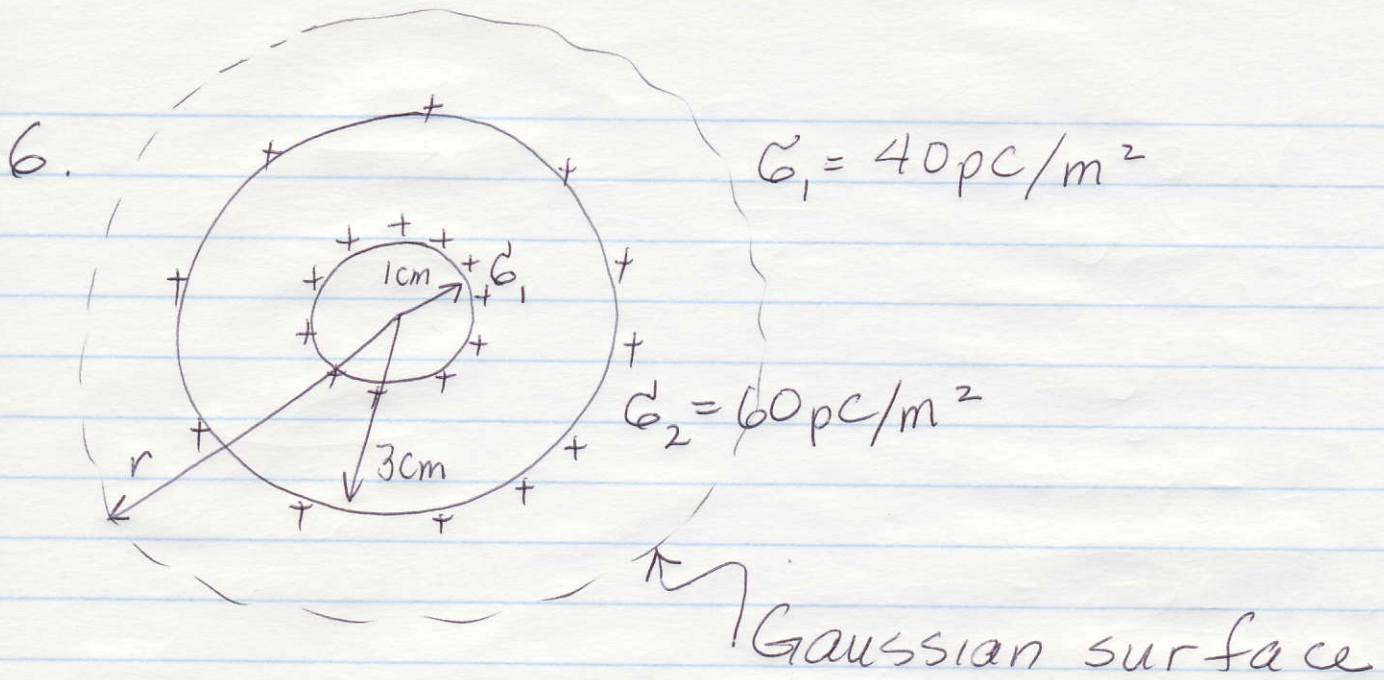 6.
σ₁ = 40pC/m²
1cm
σ₁
σ₂ = 60pC/m²
r
3cm
Gaussian surface